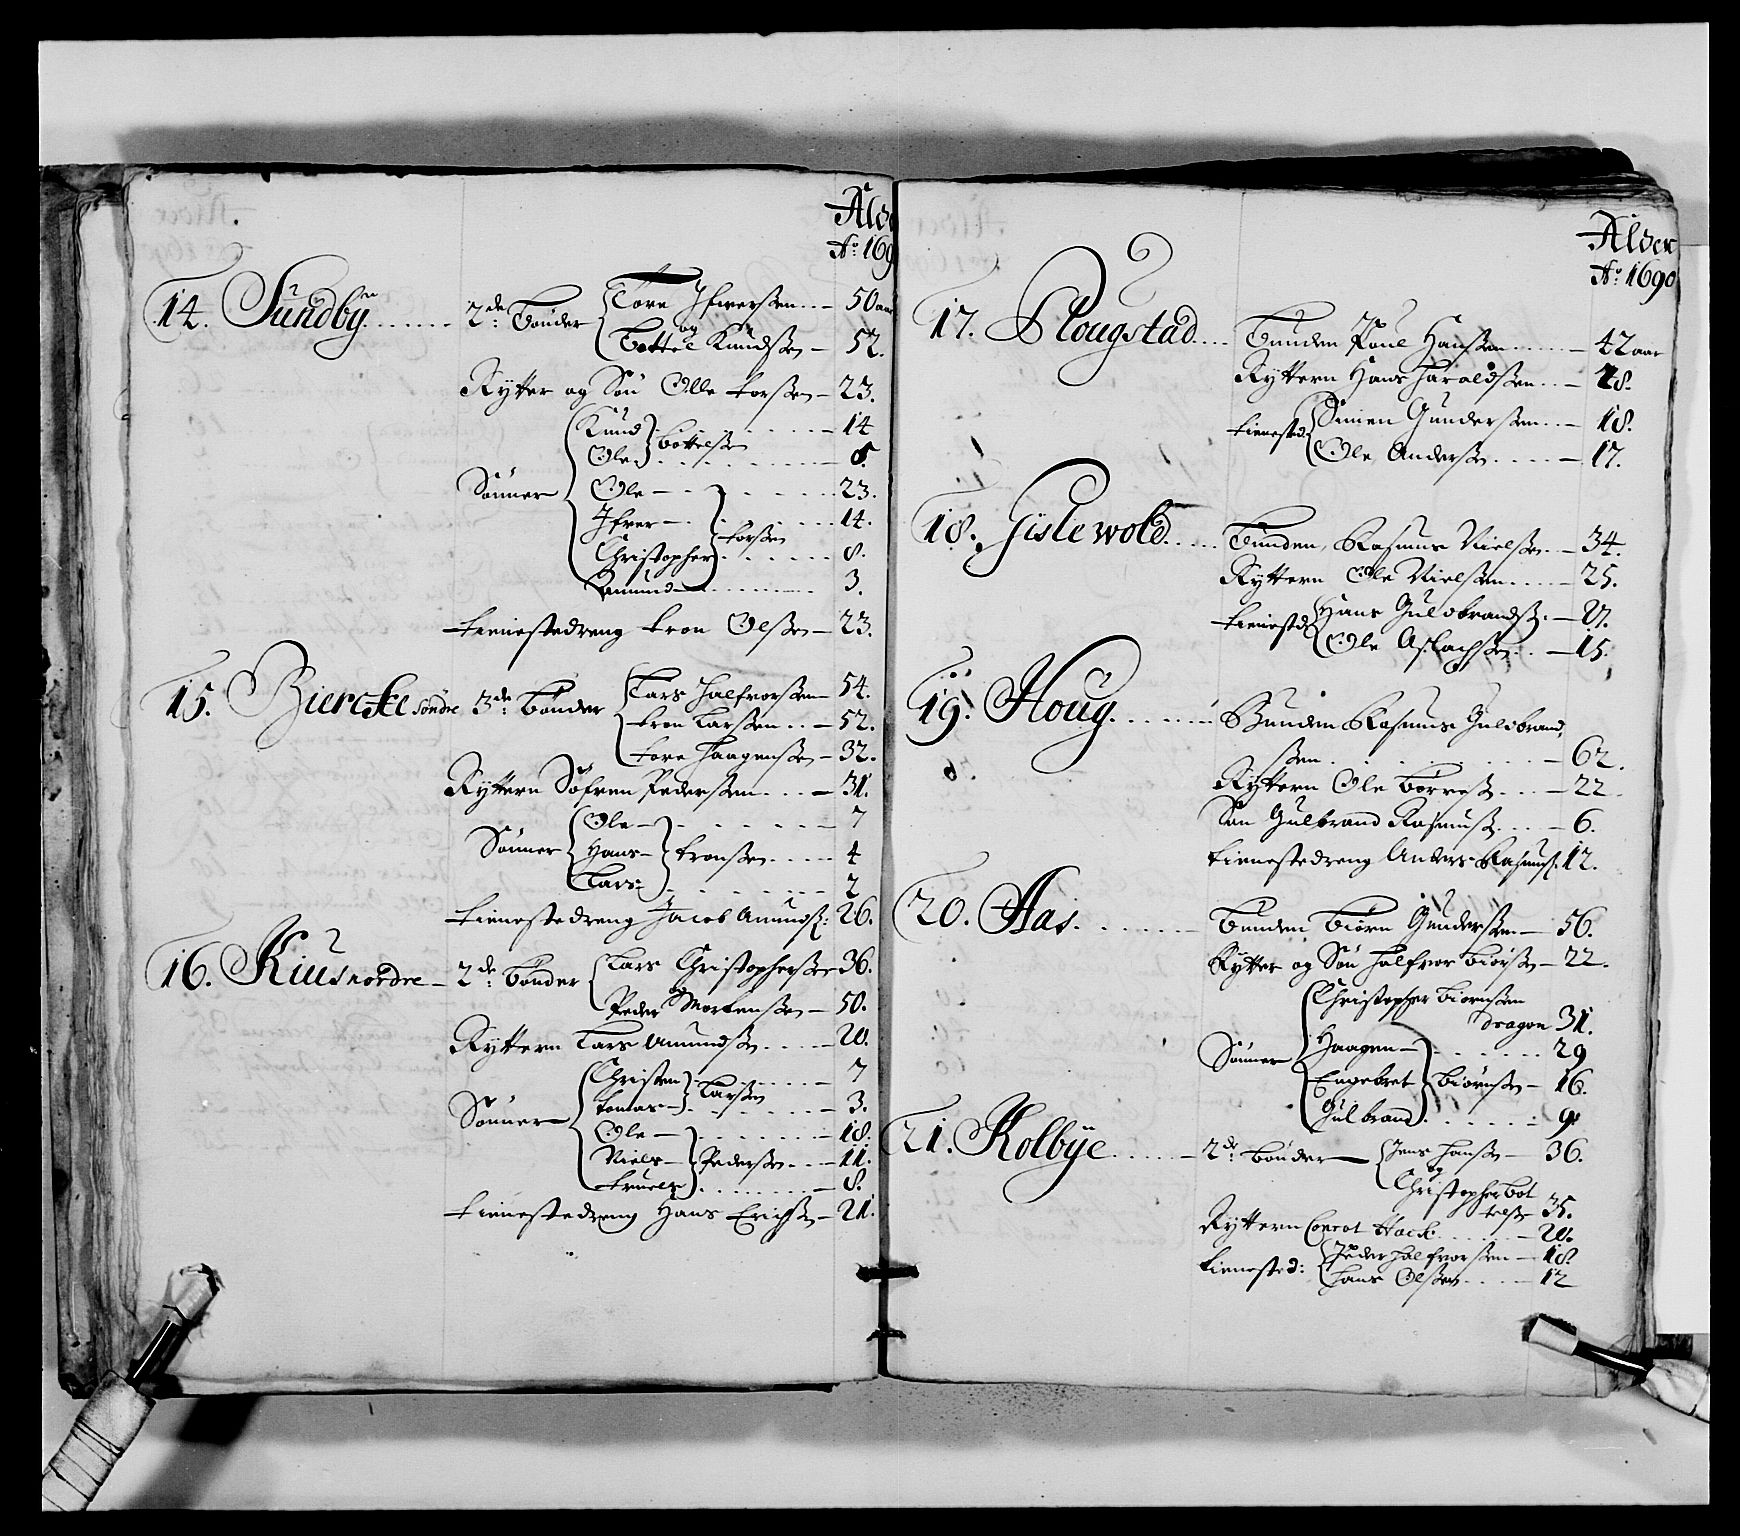 Ald
Ao 169
14. Sundbÿ
2de Bønder
Tore Ifwerssen 50 aar
og
Bottel Knudsen 52.
Rytter og Søn Olle torssen 23.
Knud 14
Ole bottelsen 8.
Sønner
Ole 23.
Ifver 14.
torsen
Christopher 8.
Amund 3.
tienestedreng tron Olsen 23.
15. Biercke søndre
3de Bønder
Lars Halfvorssen 54.
tron Larssen 52.
tore Haagenssen 32.
Ryttern Søfren Pederssen 31.
Sønner
Ole 7
Hans tronsen 4
Lars 2
tienestedreng Jacob Amunds: 26.
16. Kius nordre
2de bønder
Lars Christophersen 36.
og
Peder Mortenssen 50.
Ryttern Lars Amundsen 20.
Sønner
Christen 7
Larsen
tomas 3.
Ole 18.
Niels Pedersen 11.
truels 8.
tienestedreng Hans Erichsen 21.
Alder
Ao 1690
17. Plougstad
Bunden Poul Hanssen 42 aar
Ryttern Hans Haraldssen 28.
tienested
Simen Gunderssen 18.
Ole Andersen 17.
18. Gislewold
Bunden, Rasmus Nielsen 34.
Ryttern Ole Nielssen 25.
tienestd
Hans Guldbrands:
Ole Aslachsen 15.
19. Houg
Bunden Rasmus Guldbrand,
ssen 62.
Ryttern Ole Børres: 22
Søn Gulbrand Rasmus: 6.
tienestedreng Anders Rasmus: 12.
20. Aas
Bunden Biørn Gunderssen 56.
Rytter og Søn Halfvor Biørsen 22.
Christopher biørnssen
Dragon 31.
Sønner
Haagen 29
Engebret Biørnsen 16.
Gulbrand 9
21. Kolbÿe
2de bønder
Jens Hansen 36.
og
Christopher bot
telsen 35.
Ryttern Conrot Hack 20.
tienested:
Peder Halfvorssen 18.
Hans Olssen 12